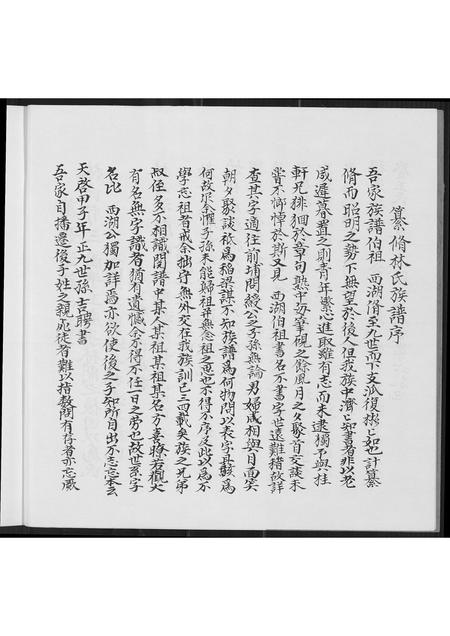 纂脩林氏族譜序
吾家族譜伯祖　西湖脩至九世而下支派復漸々如也計纂
脩而昭明之勢不無望於後人但我族中濟々知書者非以老
成遲暮置之則青年繫心進取雖有志而未逮獨予與桂
軒兄徘徊於章句熟中每筆硯之餘風月之聚首交談未
嘗不惓惓於斯又見　西湖伯祖書名不書字世遠難稽故詳
查其字適往前埔問綬公之子孫無論男婦咸相與目面笑
朝夕聚談祗為稻粱謀不知族譜為何物問以表字且駭為
何故是余懼子孫未能歸祖并無念祖之思也不得不序及此以為不
學忘祖者戒余拙守無外交在我族訓已三四載矣族之兄弟
叔侄多不相識閱譜中某人某祖某名方喜瞭若觀火
有名無字識者猶有遺憾余不得不任一日之勞也故世系字
名比　西湖公獨加詳焉亦欲使後之子知所自出不忘忘本云
天啓甲子年　正九世孫吉聘書
吾家自播遷後子姓之親疏徙者難以指數間有存者亦忘厥